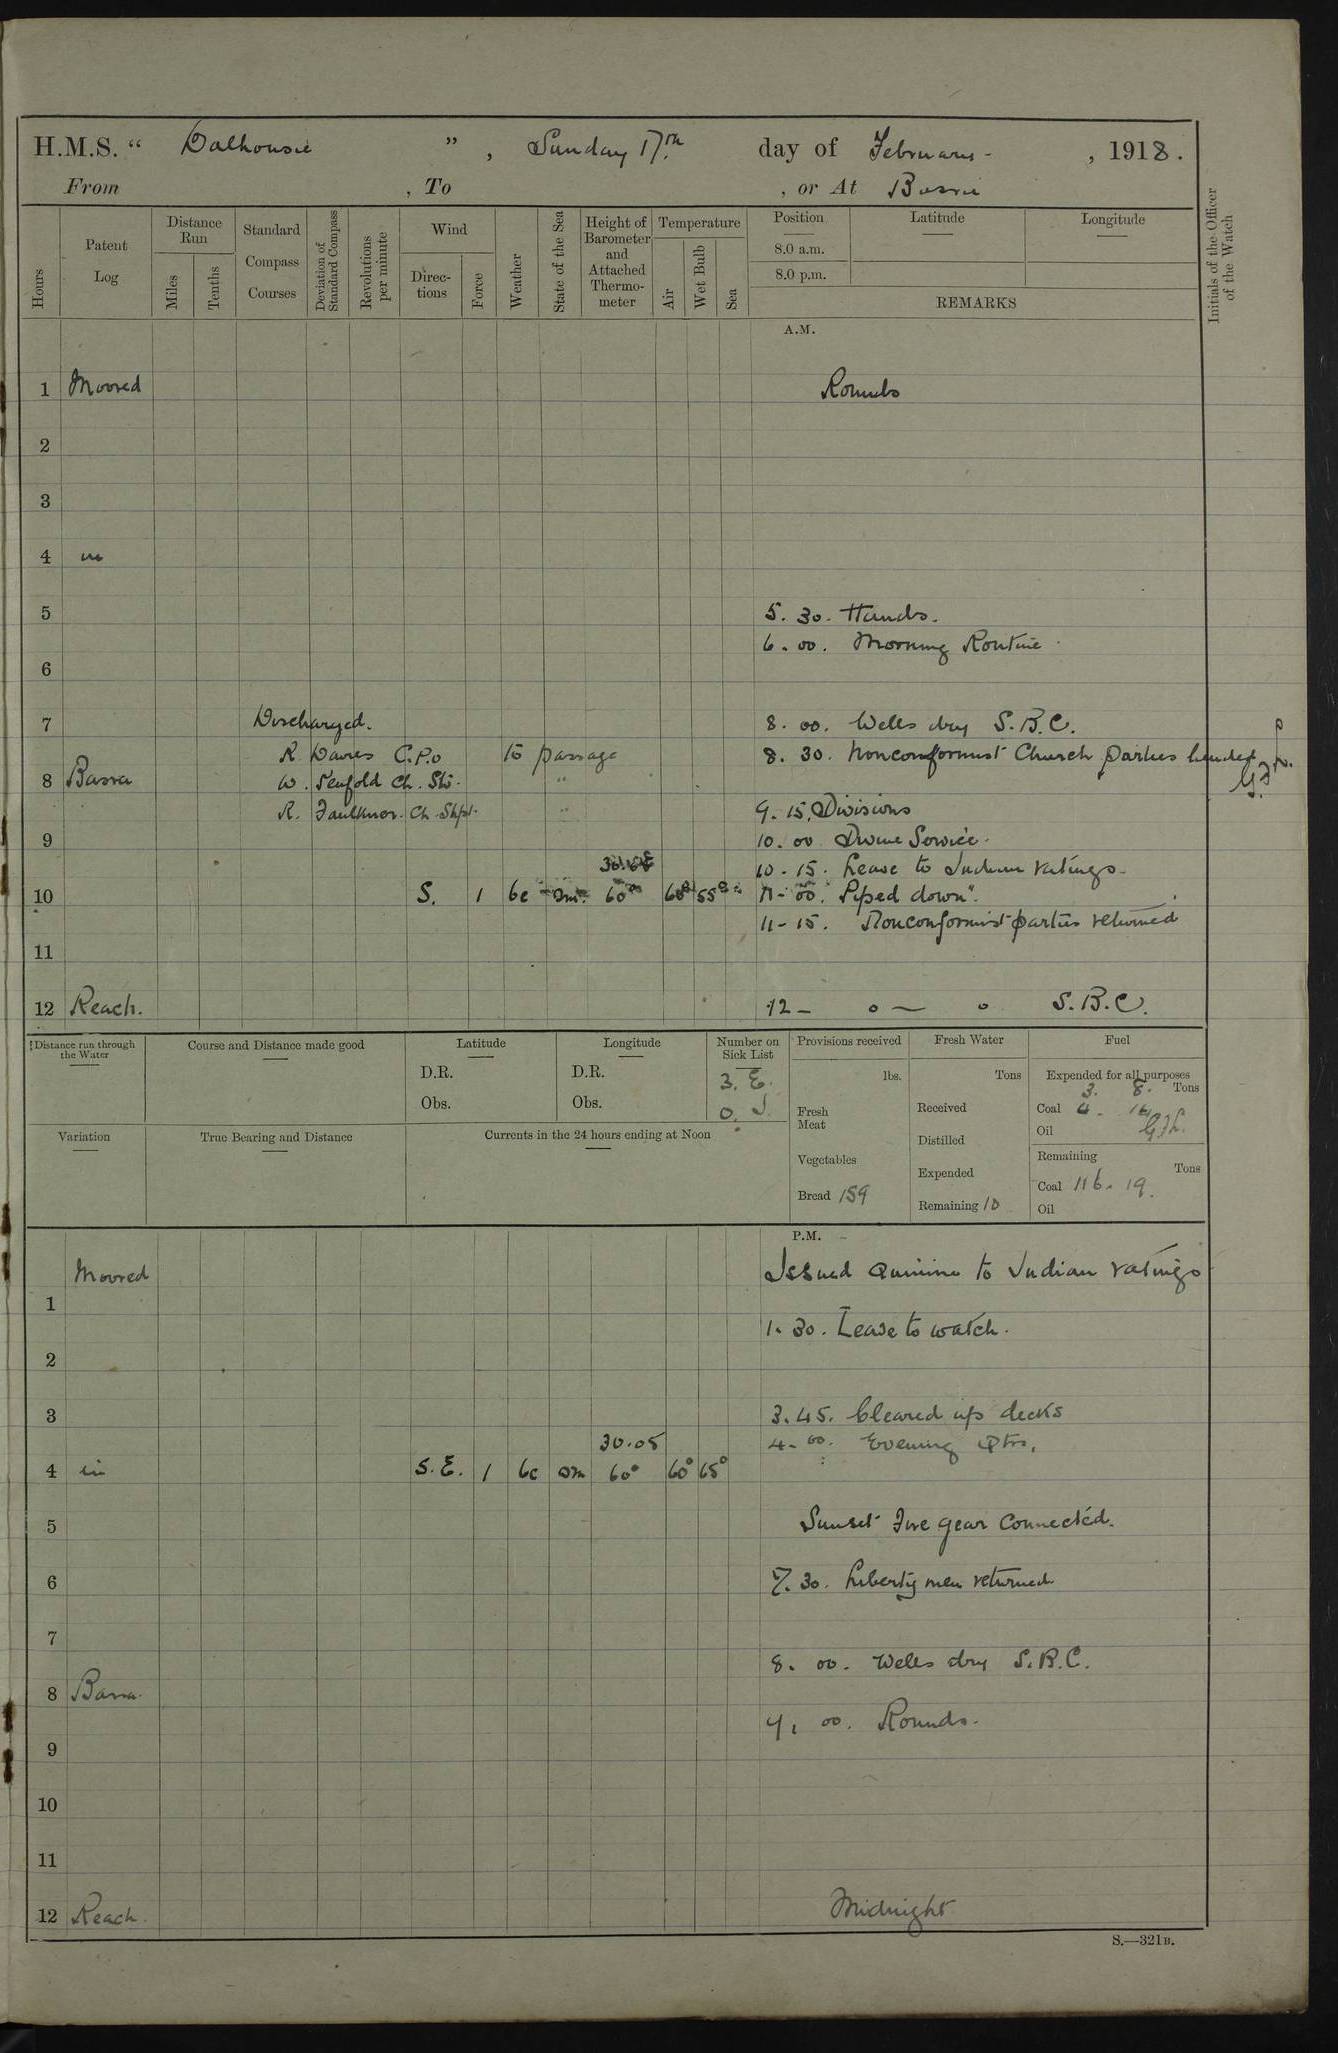 H.M.S. " Dalhousie ", Sunday 17th day of February - , 1918.
From , To , or At Basra
Hours
Patent Log
Distance Run
Miles
Tenths
Standard Compass Courses
Deviation of Standard Compass
Revolutions per minute
Wind
Directions
Force
Weather
State of the Sea
Height of Barometer and Attached Thermometer
Temperature
Air
Wet Bulb
Sea
Position
Latitude
Longitude
8.0 a.m.
8.0 p.m.
REMARKS
Initials of the Officer of the Watch
A.M.
1 Moored Rounds
2
3
4 in
5 5. 30. Hands.
6. 00. Morning Routine
6
7 Discharged. 8. 00. Wells dry S.B.C.
R. Davies C.P.O to passage 8. 30. Nonconformist Church parties landed
8 Basra W. Penfold Ch. Sto. "
R. Faulkner. Ch. Shpt. " 9. 15. Divisions
9 10. 00 Divine Service.
10. 15. Leave to Indian ratings.
10 S. 1 bc sm. 60° 60° 55° 11- 00. Piped down".
11- 15. Nonconformist parties returned
11
12 Reach. 12 - o — o S.B.C.
Distance run through the Water
Course and Distance made good
Latitude
D.R.
Obs.
Longitude
D.R.
Obs.
Number on Sick List
3. E.
0. I.
Provisions received
lbs.
Fresh Meat
Vegetables
Bread 159
Fresh Water
Tons
Received
Distilled
Expended
Remaining 10
Fuel
Expended for all purposes
3. 8. Tons
Coal 4. 14
Oil
Remaining
Tons
Coal 116. 19.
Oil
Variation
True Bearing and Distance
Currents in the 24 hours ending at Noon
P.M.
Moored Issued Quinine to Indian ratings
1
1. 30. Leave to watch.
2
3 3. 45. Cleared up decks
30.05 4. 00. Evening Qtrs.
4 in S.E. 1 bc sm 60° 60° 65°
5 Sunset Fire gear connected.
6 7. 30. Liberty men returned
7
8. 00. Wells dry S.B.C.
8 Basra.
9. 00. Rounds.
9
10
11
12 Reach. Midnight
S.—321B.